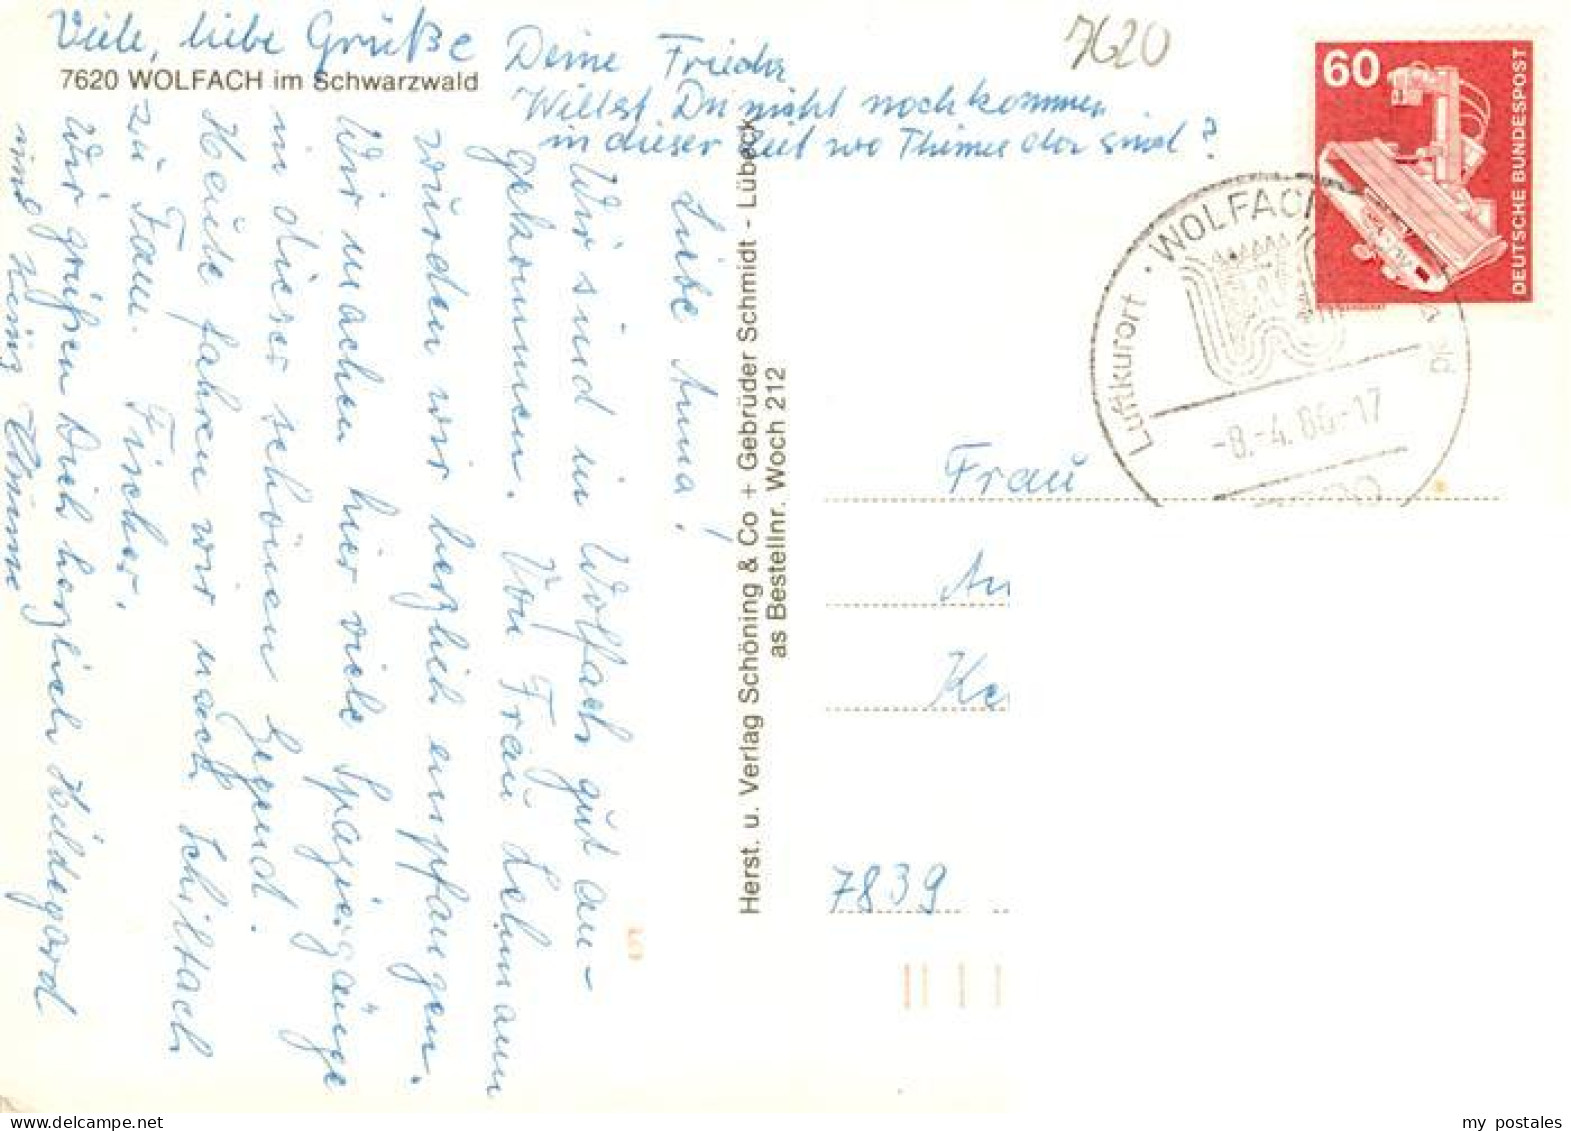 Viele, liebe Grüße
Deine Frieda
Willst Du nicht noch kommen
in dieser Zeit wo Thimes da sind?
7620 WOLFACH im Schwarzwald
7620
Liebe Anna!
Wir sind in Wolfach gut an-
gekommen. Von Frau Lehmann
wurden wir herzlich empfangen.
Wir machen hier viele Spaziergänge
in dieser schönen Gegend.
Heute fahren wir nach Schiltach
zu Fam. Fischer.
Wir grüßen Dich herzlich Hildegard
und Heinz
Herst. u. Verlag Schöning & Co + Gebrüder Schmidt - Lübeck
as Bestellnr. Woch 212
60
DEUTSCHE BUNDESPOST
Luftkurort · WOLFACH
-8.-4.86-17
Frau
An
Ke
7839
my_postales